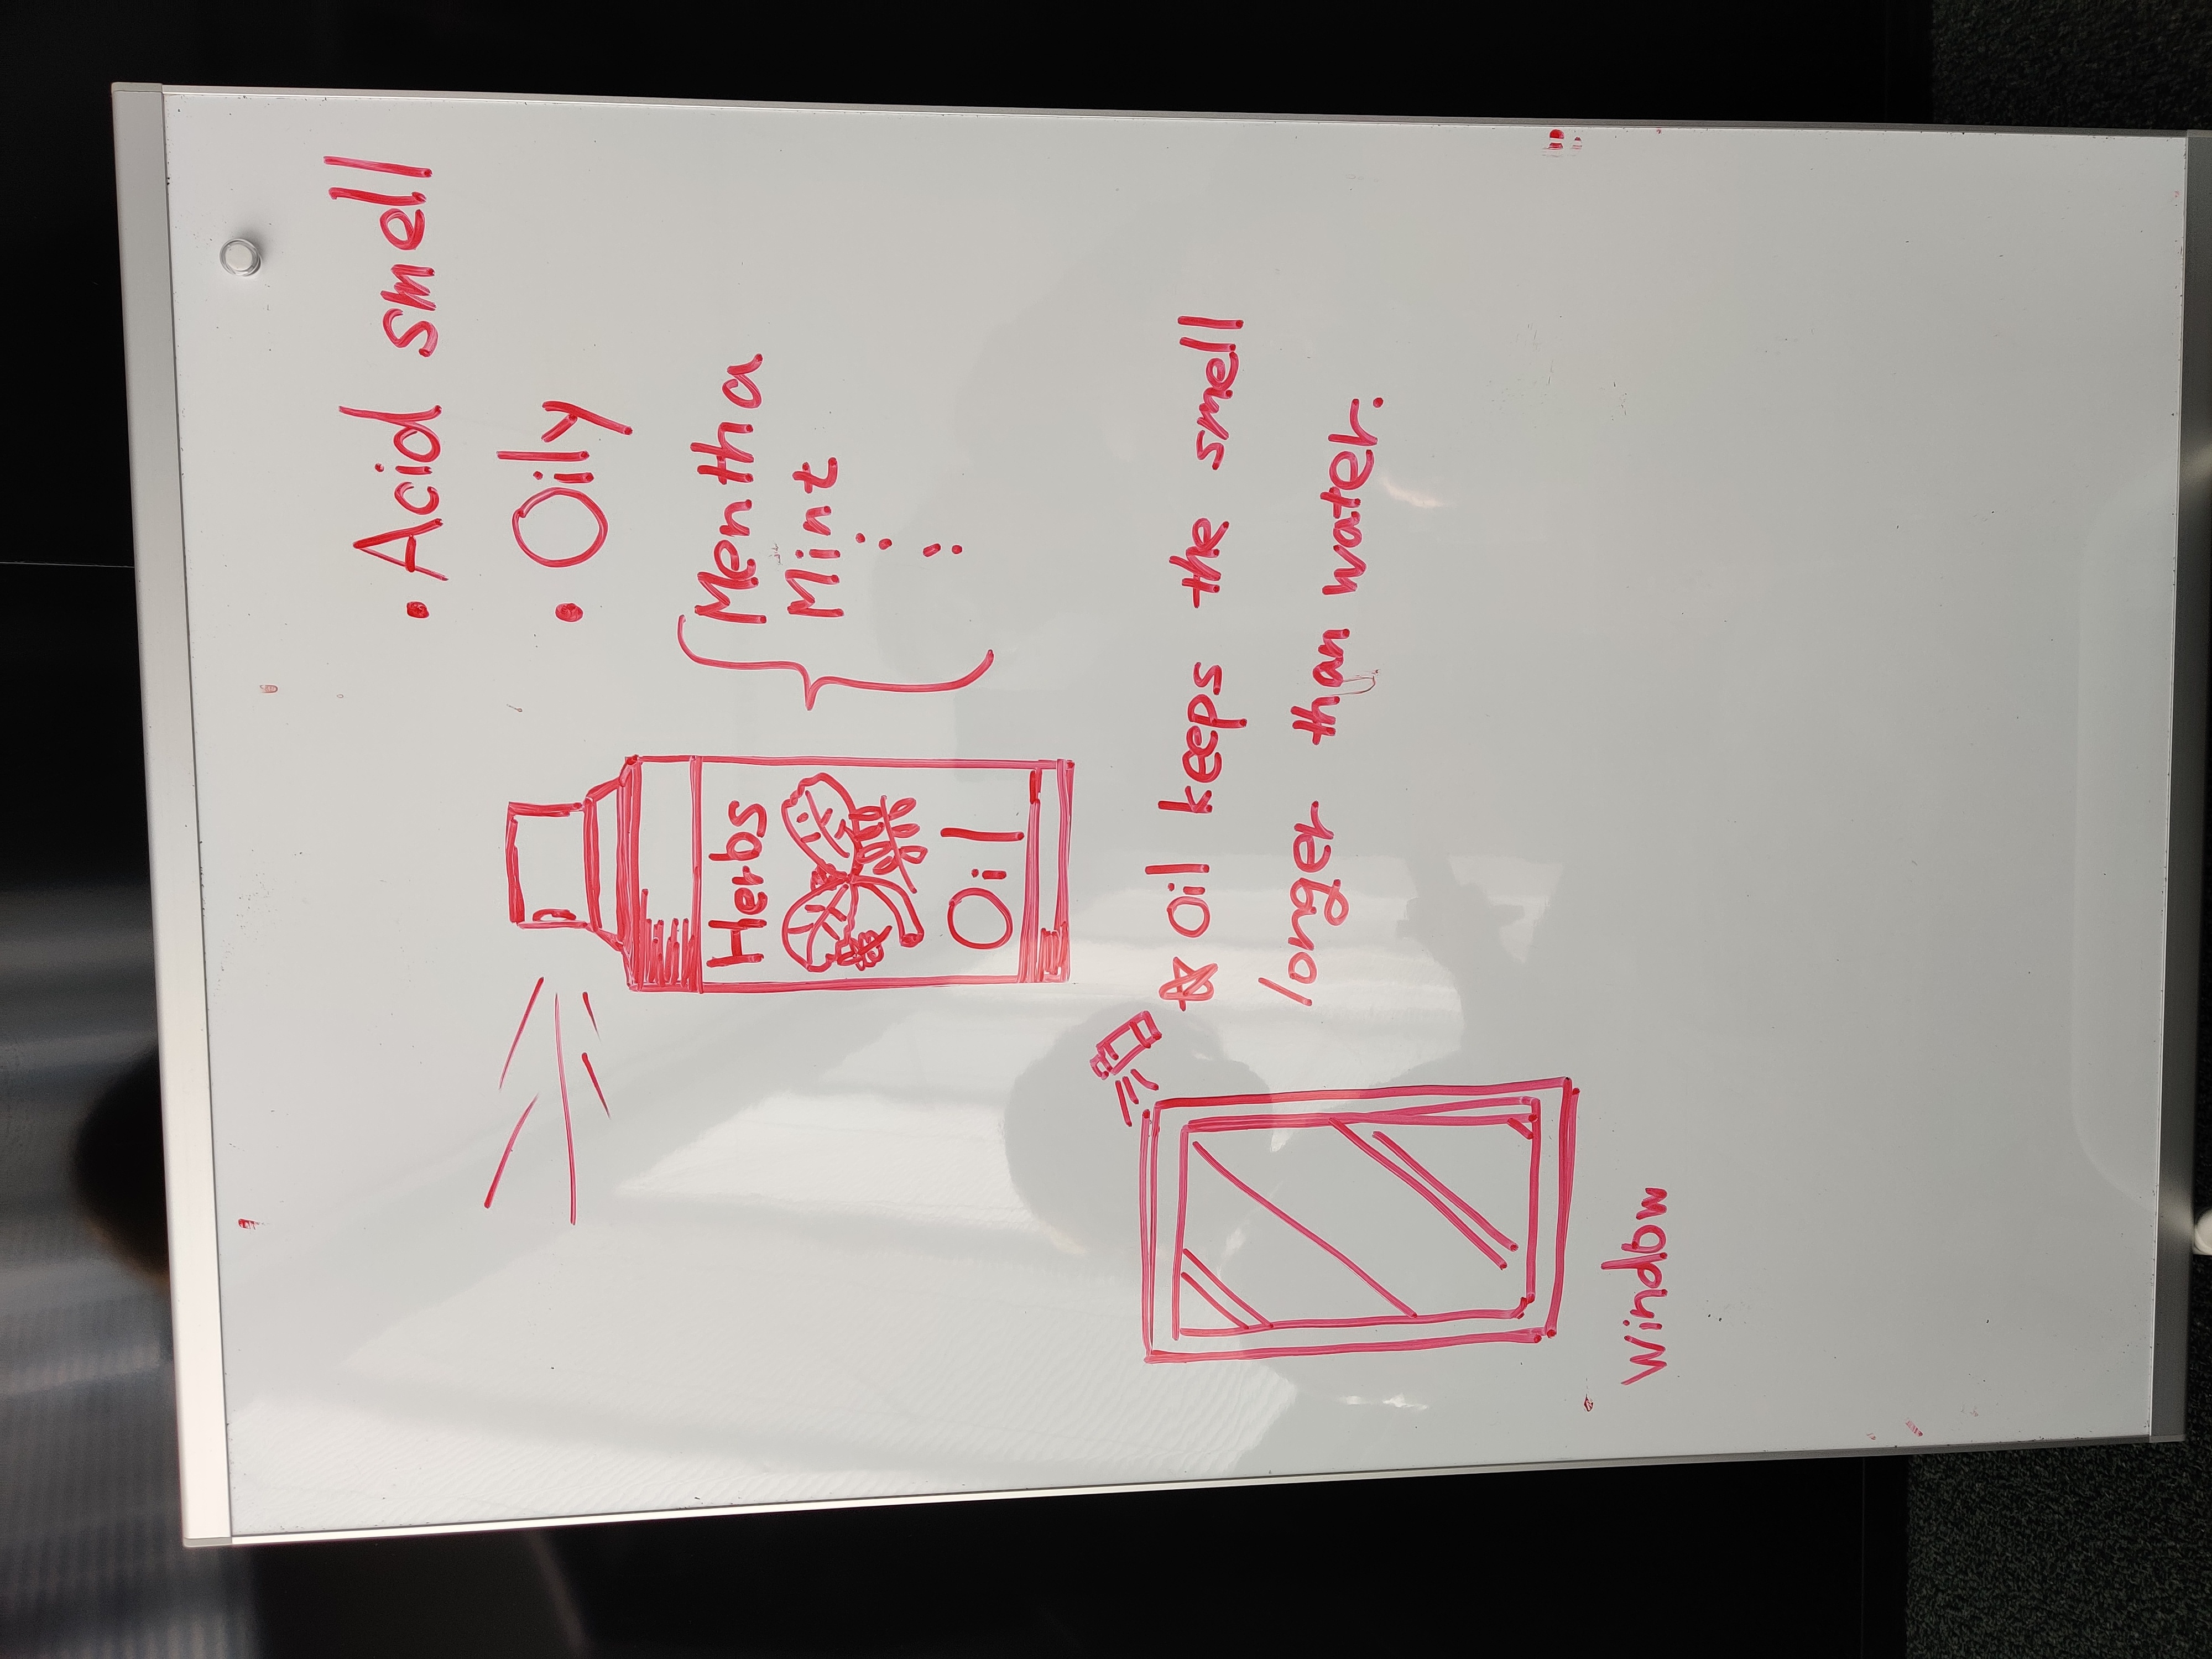 • Acid smell
• Oily
Herbs
Oil
Mentha
Mint
☆ Oil keeps the smell
longer than water.
Window